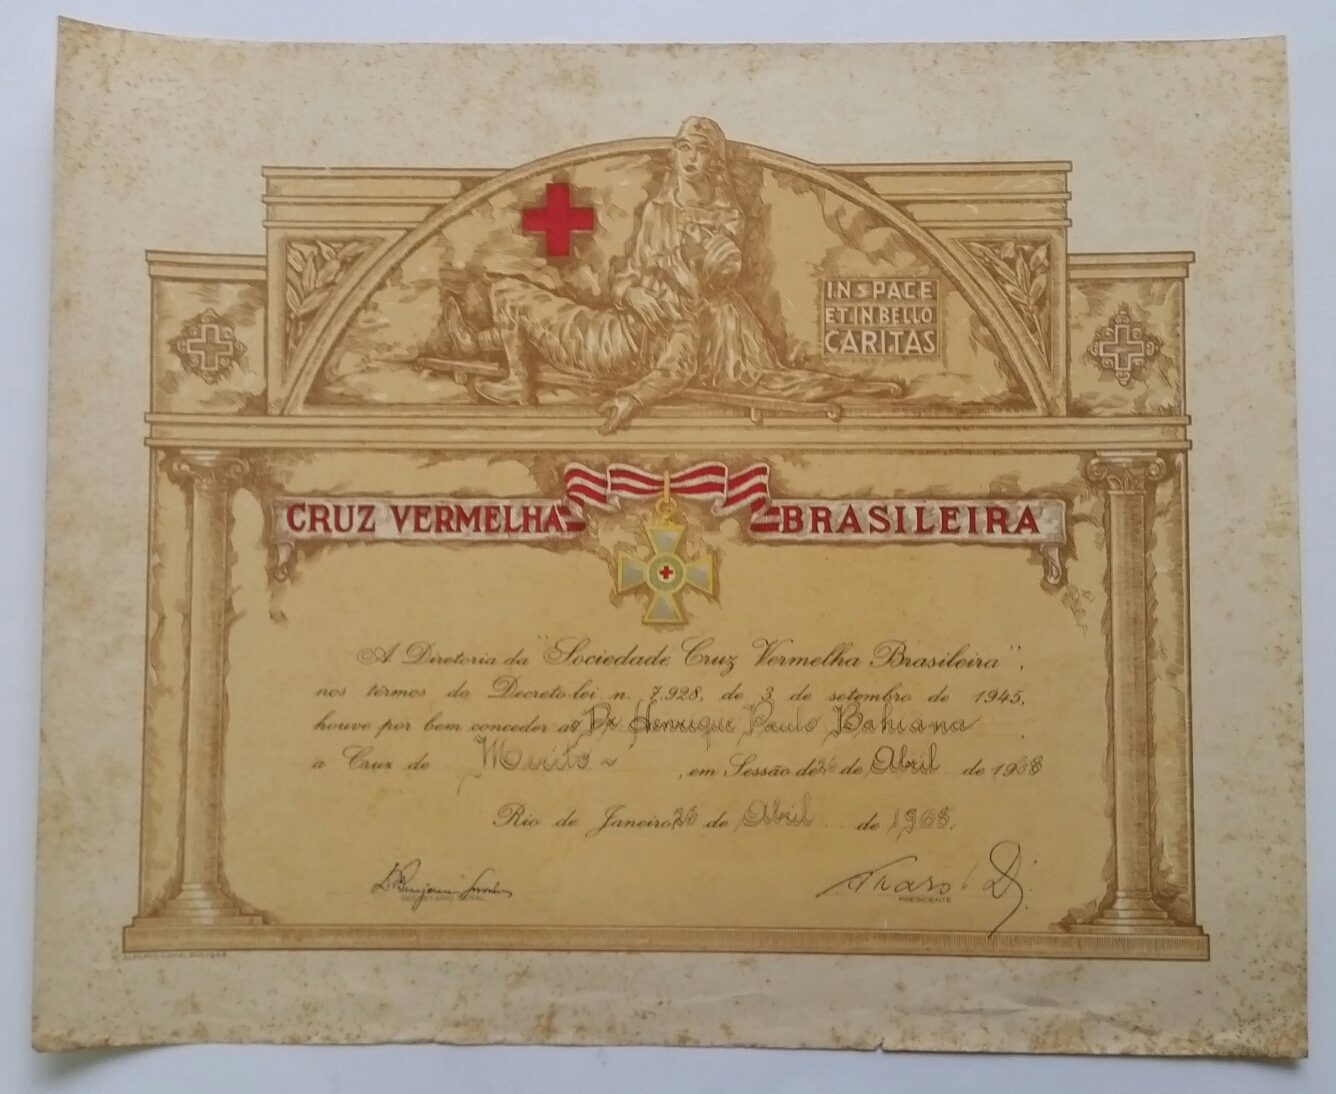 IN PACE
ET IN BELLO
CARITAS
CRUZ VERMELHA BRASILEIRA
A Diretoria da "Sociedade Cruz Vermelha Brasileira",
nos têrmos do Decreto-lei n. 7.928, de 3 de setembro de 1945,
houve por bem conceder ao Dr. Henrique Paulo Bahiana
a Cruz de Merito ~, em Sessão de 26 de Abril de 1968
Rio de Janeiro 26 de Abril de 1968.
SECRETARIO GERAL
PRESIDENTE